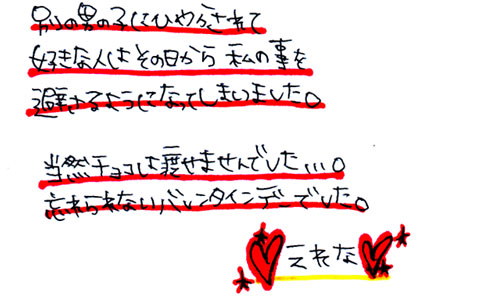 別の男の子にひやかされて
好きな人はその日から私の事を
避けるようになってしまいました。
当然チョコは渡せませんでした…。
忘れられないバレンタインデーでした。
えれな